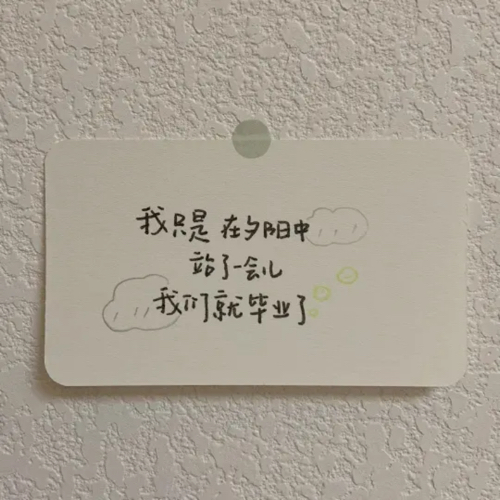 我只是在夕阳中
站了一会儿
我们就毕业了